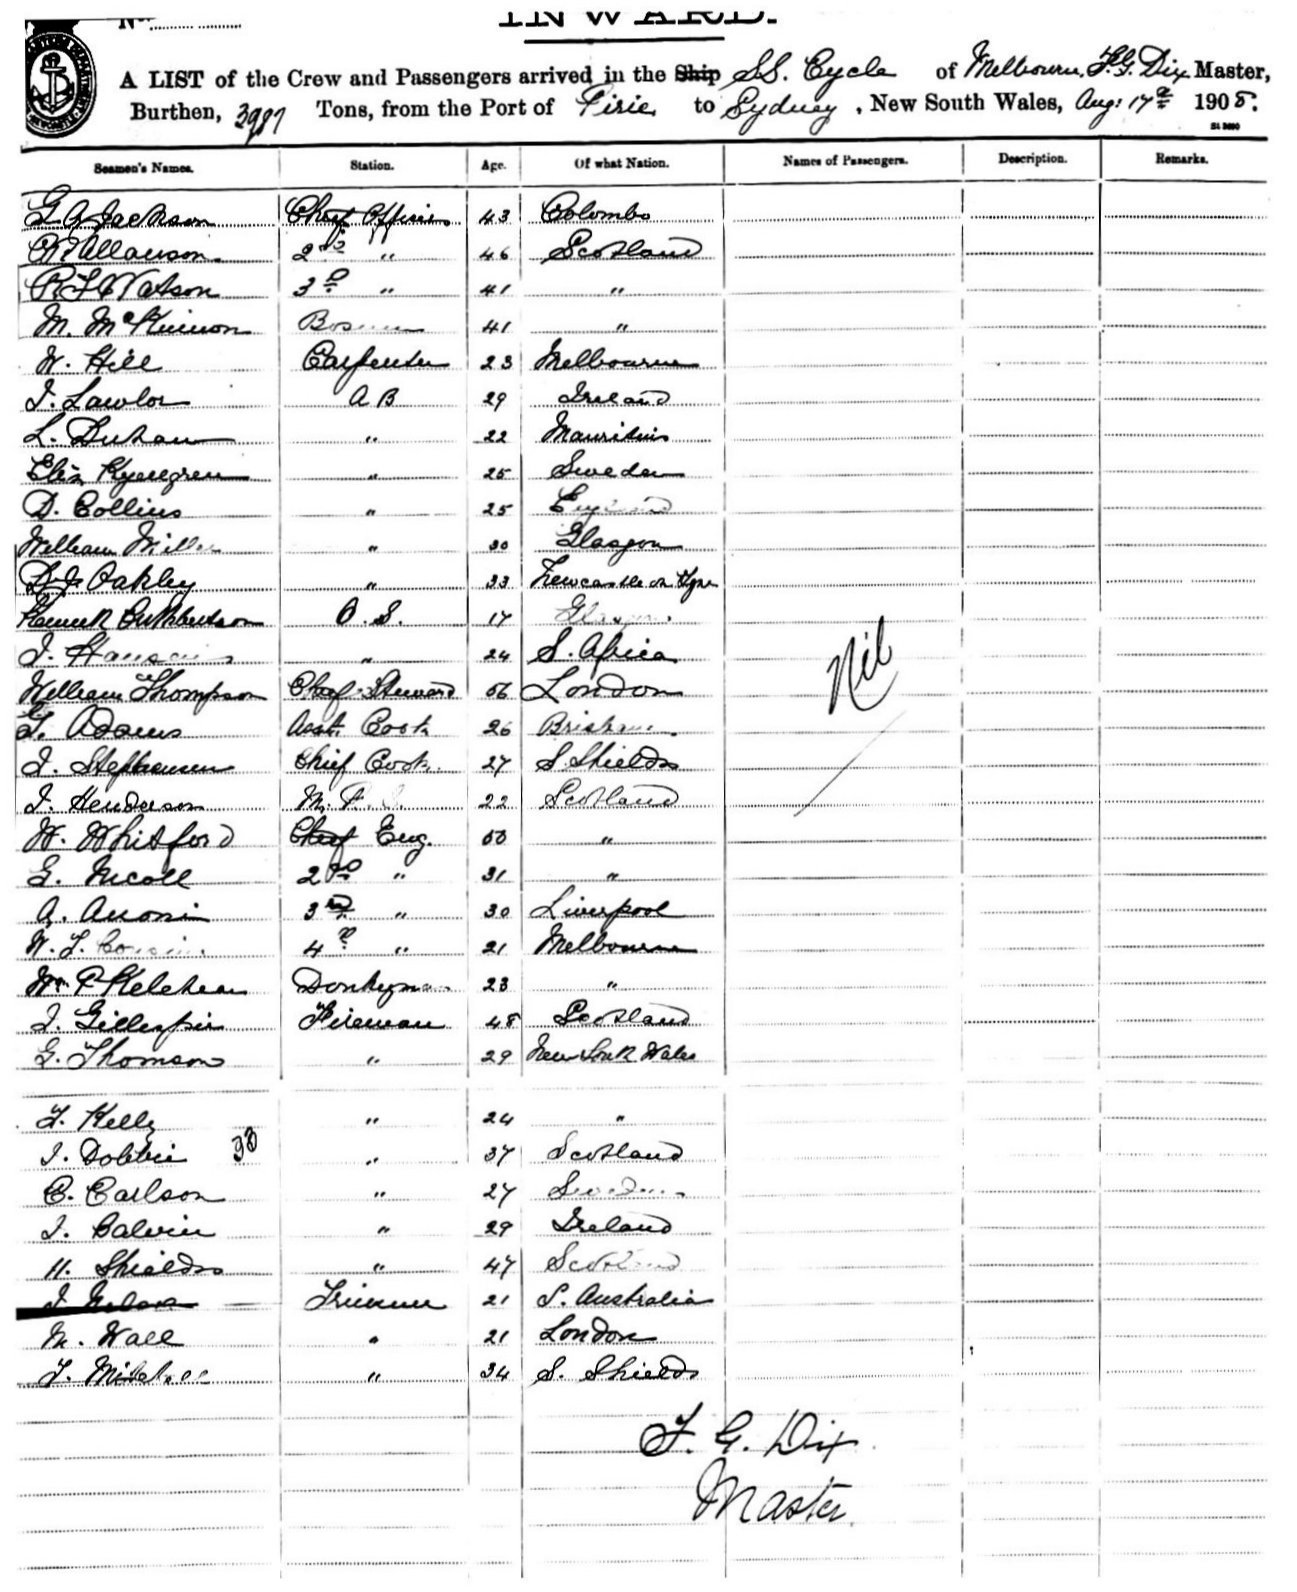 No.
INWARD.
A LIST of the Crew and Passengers arrived in the Ship S.S. Cycle of Melbourne, F.G. Dix Master,
Burthen, 3987 Tons, from the Port of Pirie to Sydney, New South Wales, Aug: 17th 1905.
Seamen's Names. Station. Age. Of what Nation. Names of Passengers. Description. Remarks.
G. A. Jackson Chief Officer 43 Colombo
Allanson 2nd " 46 Scotland
Watson 3rd " 41 "
M. McKinnon Bosun 41 "
W. Hill Carpenter 23 Melbourne
J. Lawlor A B 29 Ireland
L. " 22 Mauritius
" 25 Sweden
D. Collins " 25 England
William Miller " 30 Glasgow
Oakley " 33 Newcastle on Tyne
Cuthbertson O. S. 17 Glasgow
J. " 24 S. Africa
William Thompson Chief Steward 56 London
Adams Asst. Cook 26 Brisbane
J. Stephenson Chief Cook 27 S. Shields
J. Henderson M. R. 22 Scotland
W. Whitford Chief Eng. 50 "
G. Nicoll 2nd " 31 "
A. 3rd " 30 Liverpool
W. J. 4th " 21 Melbourne
Wm Donkeyman 23 "
J. Gillespie Fireman 48 Scotland
G. Thomson " 29 New South Wales
Nil
T. Kelly " 24 "
J. Dobbie " 37 Scotland
33
C. Carlson " 27 Sweden
J. Galvin " 29 Ireland
H. Shields " 47 Scotland
J. Trimmer 21 S. Australia
M. Wall " 21 London
J. Mitchell " 34 S. Shields
F. G. Dix
Master.